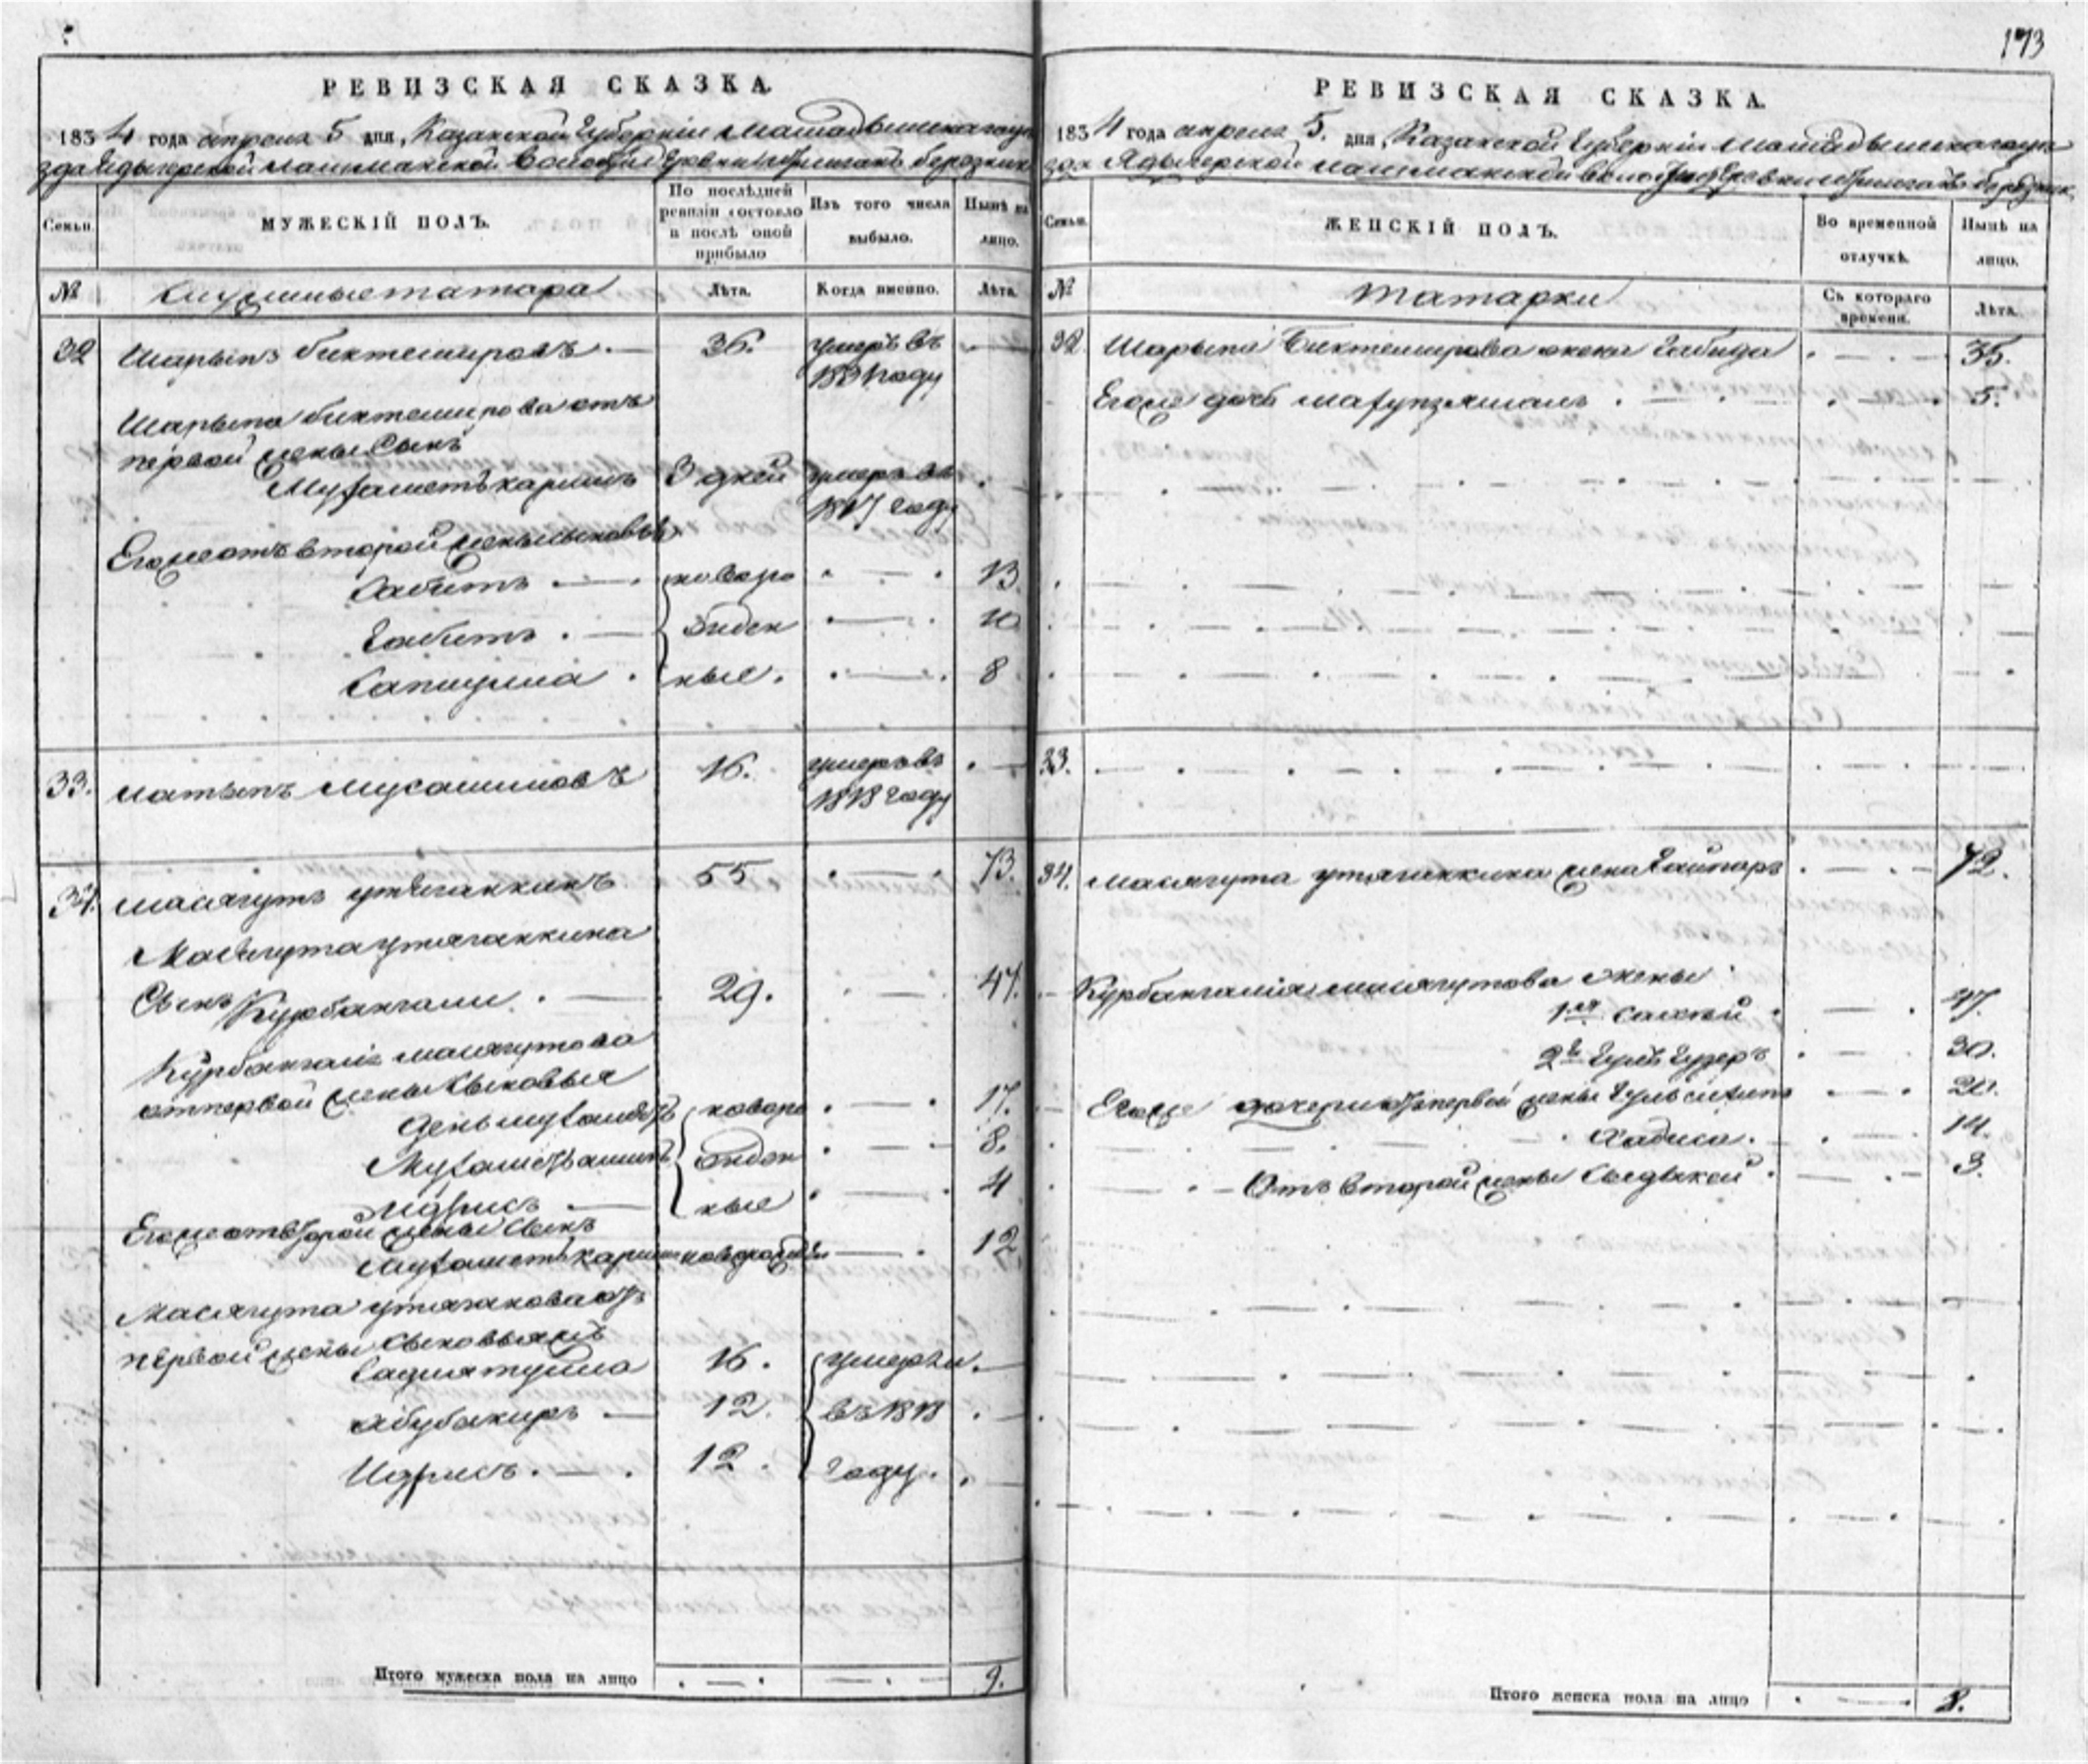 173
РЕВИЗСКАЯ СКАЗКА.
1834 года апреля 5 дня, Казанской Губернiи Мамадышскаго уе
зда Ядыгерской лашманской волости деревни березник
Семьи.
МУЖЕСКІЙ ПОЛЪ.
По послѣдней ревизіи состояло и послѣ оной прибыло
Изъ того числа выбыло.
Нынѣ на лицо.
№
Служилые татара
Лѣта.
Когда именно.
Лѣта.
32 Шарыпъ Бихтемировъ. 36. умеръ въ
1831 году
Шарыпа Бихтемирова отъ
первой жены сынъ
Мухаметъкаримъ 3 дней умеръ въ
1817 году
Егоже отъ второй жены сыновья
Сабитъ новоро 13
Габитъ. зжден 10
Сапиулла ные. 8
33. Латыпъ Мусалимовъ 16. умеръ въ
1818 году
34. Масягутъ Утяганкинъ 55 73.
Масягута Утяганкина
Сынъ Курбангали. 29. 47.
Курбангалія Масягутова
от первой жены сыновья
новоро 17.
зжден 8.
Идрисъ ные 4
Егоже отъ второй жены сынъ
Мухаметъкаримъ новорожден 12.
Масягута Утяганова отъ
первой жены сыновья
Садиятулла 16. умерли
Абубакиръ 12. въ 1818
Идрисъ. 12. году.
Итого мужеска пола на лицо 9.
РЕВИЗСКАЯ СКАЗКА.
1834 года апреля 5. дня, Казанской Губернiи Мамадышскаго уе
зда Ядыгерской лашманской волости деревни березник
Семьи.
ЖЕНСКІЙ ПОЛЪ.
Во временной отлучкѣ.
Нынѣ на лицо.
№
Татарки
Съ котораго времени.
Лѣта.
32. Шарыпа Бихтемирова жена Габида 35.
Егоже дочь Махупзямаль. 5.
33.
34. Масягута Утяганкина жена 72.
Курбангалія Масягутова жены
1я 47.
2я 30.
Егоже дочери отъ первой жены 20.
Хадиса. 14.
Отъ второй жены 3.
Итого женска пола на лицо 8.